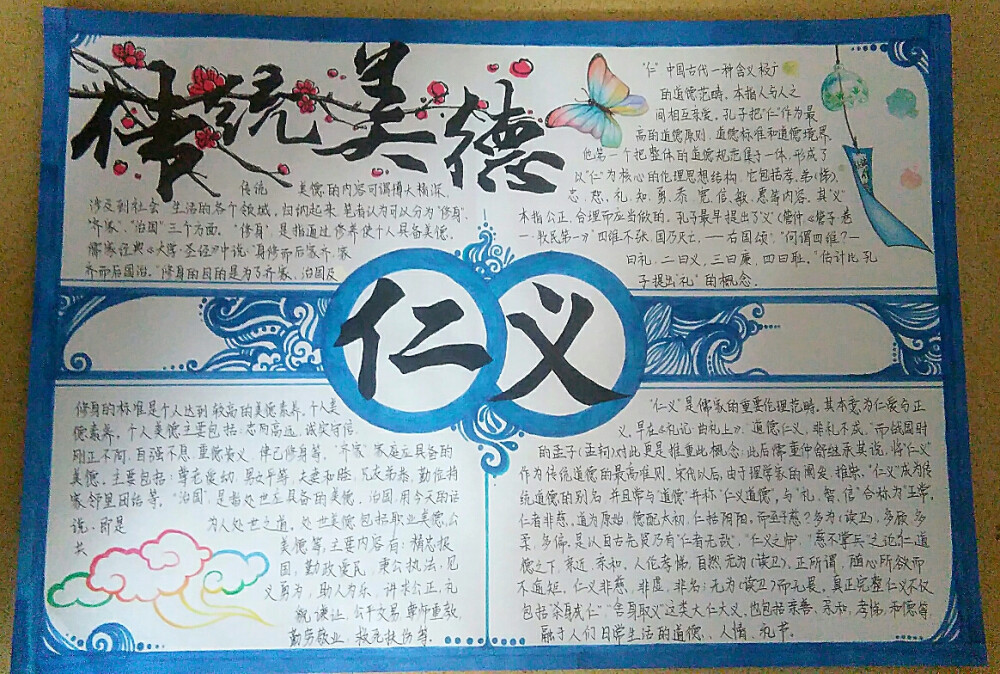 传统美德
传统 美德的内容可谓博大精深,
涉及到社会 生活的各个领域,归纳起来,笔者认为可以分为“修身”、
“齐家”、“治国”三个方面。“修身”,是指通过修养使个人具备美德。
儒家经典《大学·圣经》中说:“身修而后家齐,家
齐而后国治。”修身的目的是为了齐家、治国及
“仁”中国古代一种含义极广
的道德范畴。本指人与人之
间相互亲爱。孔子把“仁”作为最
高的道德原则、道德标准和道德境界。
他第一个把整体的道德规范集于一体,形成了
以“仁”为核心的伦理思想结构,它包括孝、弟(悌)、
忠、恕、礼、知、勇、恭、宽、信、敏、惠等内容。其“义”
本指公正、合理而应当做的。孔子最早提出了“义”《管仲·《管子
一·牧民第一》“四维不张,国乃灭亡。——右国颂”。“何谓四维?一
曰礼,二曰义,三曰廉,四曰耻。”估计比孔
子提出“礼”的概念。
仁义
修身的标准是个人达到较高的美德素养。个人美
德素养。个人美德主要包括:志向高远、诚实守信、
刚正不阿、自强不息、重德贵义、律己修身等。“齐家”家庭应具备的
美德。主要包括:尊老爱幼、男女平等、夫妻和睦、兄友弟恭、勤俭持
家、邻里团结等。“治国”是指处世应具备的美德。治国,用今天的话
说,即是 为人处世之道,处世美德包括职业美德、公
共 美德等,主要内容有:精忠报
国、勤政爱民、秉公执法、见
义勇为、助人为乐、讲求公正、礼
貌谦让、公平交易、尊师重教、
勤劳敬业、救死扶伤等。
“仁义”是儒家的重要伦理范畴。其本意为仁爱与正
义。早在《礼记·曲礼上》:“道德仁义,非礼不成。”而战国时
的孟子(孟轲)对此更是推重此概念;此后儒董仲舒继承其说,将“仁义”
作为传统道德的最高准则。宋代以后,由于理学家的阐发、推崇,“仁义”成为传
统道德的别名,并且常与“道德”并称“仁义道德”。与“礼、智、信”合称为“五常”。
仁者非慈,道为原始,德配太初,仁括阴阳,而至于慈?多为(读卫)、多欲、多
柔、多偏。是以自古先贤乃有“仁者无敌”、“仁义之师”、“慈不掌兵”之论。仁、道
德之下,亲近、亲和、人伦孝悌,自然无为(读卫)。正所谓,随心所欲而
不逾矩。仁义非慈,非虚,非名;无为(读卫)而无畏。真正完整仁义不仅
包括“杀身成仁”“舍身取义”这类大仁大义,也包括亲善、亲和、孝悌、和德等
融于人们日常生活的道德、人情、礼节。